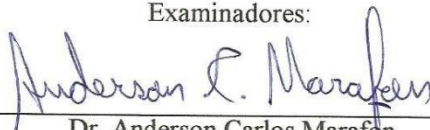 Examinadores:
Anderson C. Marafon
Dr. Anderson Carlos Marafon